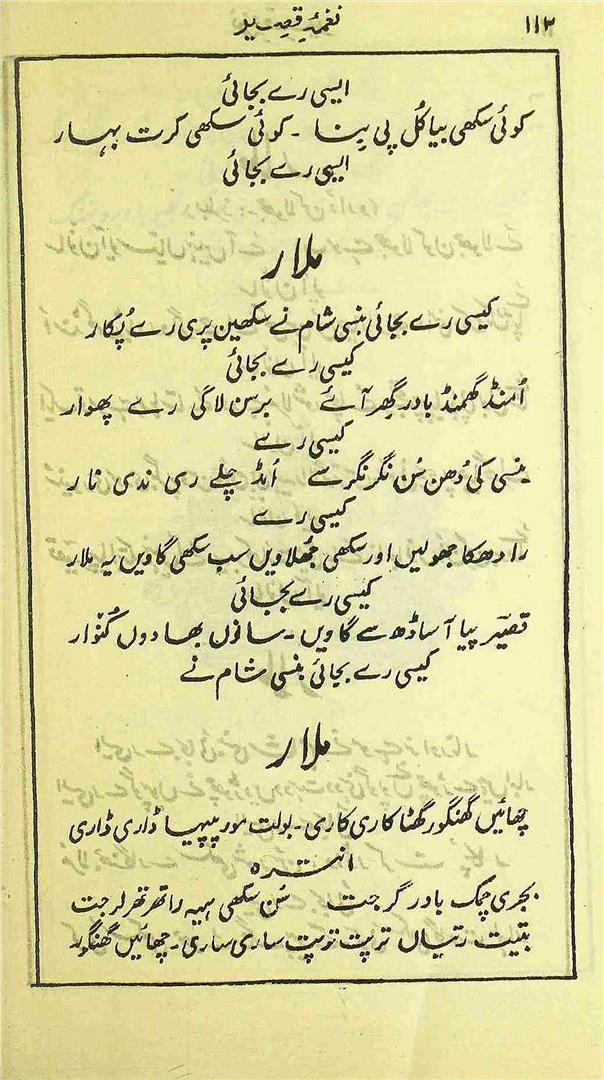 ۱۱۲
نغمۂ قصیر
ایسی رے بجائی
کوئی سکھی بیاکُل پی بِنا - کوئی سکھی کرت بہار
ایسی رے بجائی
ملار
کیسی رے بجائی بنسی شام نے سکھین پری رے پُکار
کیسی رے بجائی
اُمنڈ گھمنڈ بادر گھِر آئے برسن لاگی رے پھوار
کیسی رے
بنسی کی دُھن سُن نگر نگر سے اُمڈ چلے ری ندی نار
کیسی رے
رادھکا جھولیں اور سکھی جُھلاویں سب سکھی گاویں یہ ملار
کیسی رے بجائی
قصیرؔ پیا آساڈھ سے گاویں - ساؤں بھادوں کُنوار
کیسی رے بجائی بنسی شام نے
ملار
چھائیں گھنگور گھٹا کاری کاری - بولت مور پپیہا ڈاری ڈاری
انترہ
بجری چمک بادر گرجت سُن سکھی ہیہ را تھر تھر لرجت
بتیت رتیاں ترپت ترپت ساری ساری - چھائیں گھنگور